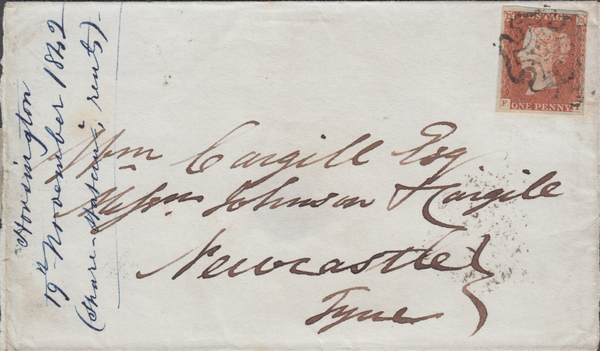 POSTAGE
ONE PENNY
Wm Cargill Esq
Messrs Johnson & Cargill
Newcastle
Tyne
19th November 1842
(Share - rents)